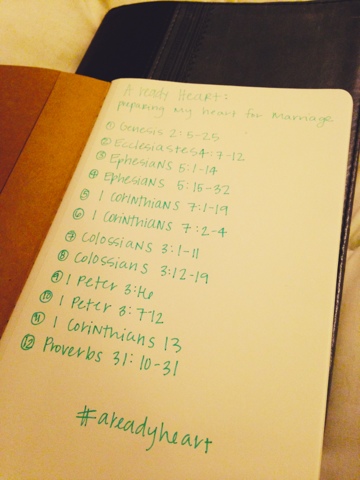 A ready Heart:
preparing my heart for Marriage
① Genesis 2:5-25
② Ecclesiastes 4:7-12
③ Ephesians 5:1-14
④ Ephesians 5:15-32
⑤ 1 Corinthians 7:1-19
⑥ 1 Corinthians 7:2-4
⑦ Colossians 3:1-11
⑧ Colossians 3:12-19
⑨ 1 Peter 3:1-6
⑩ 1 Peter 3:7-12
⑪ 1 Corinthians 13
⑫ Proverbs 31:10-31
#areadyheart